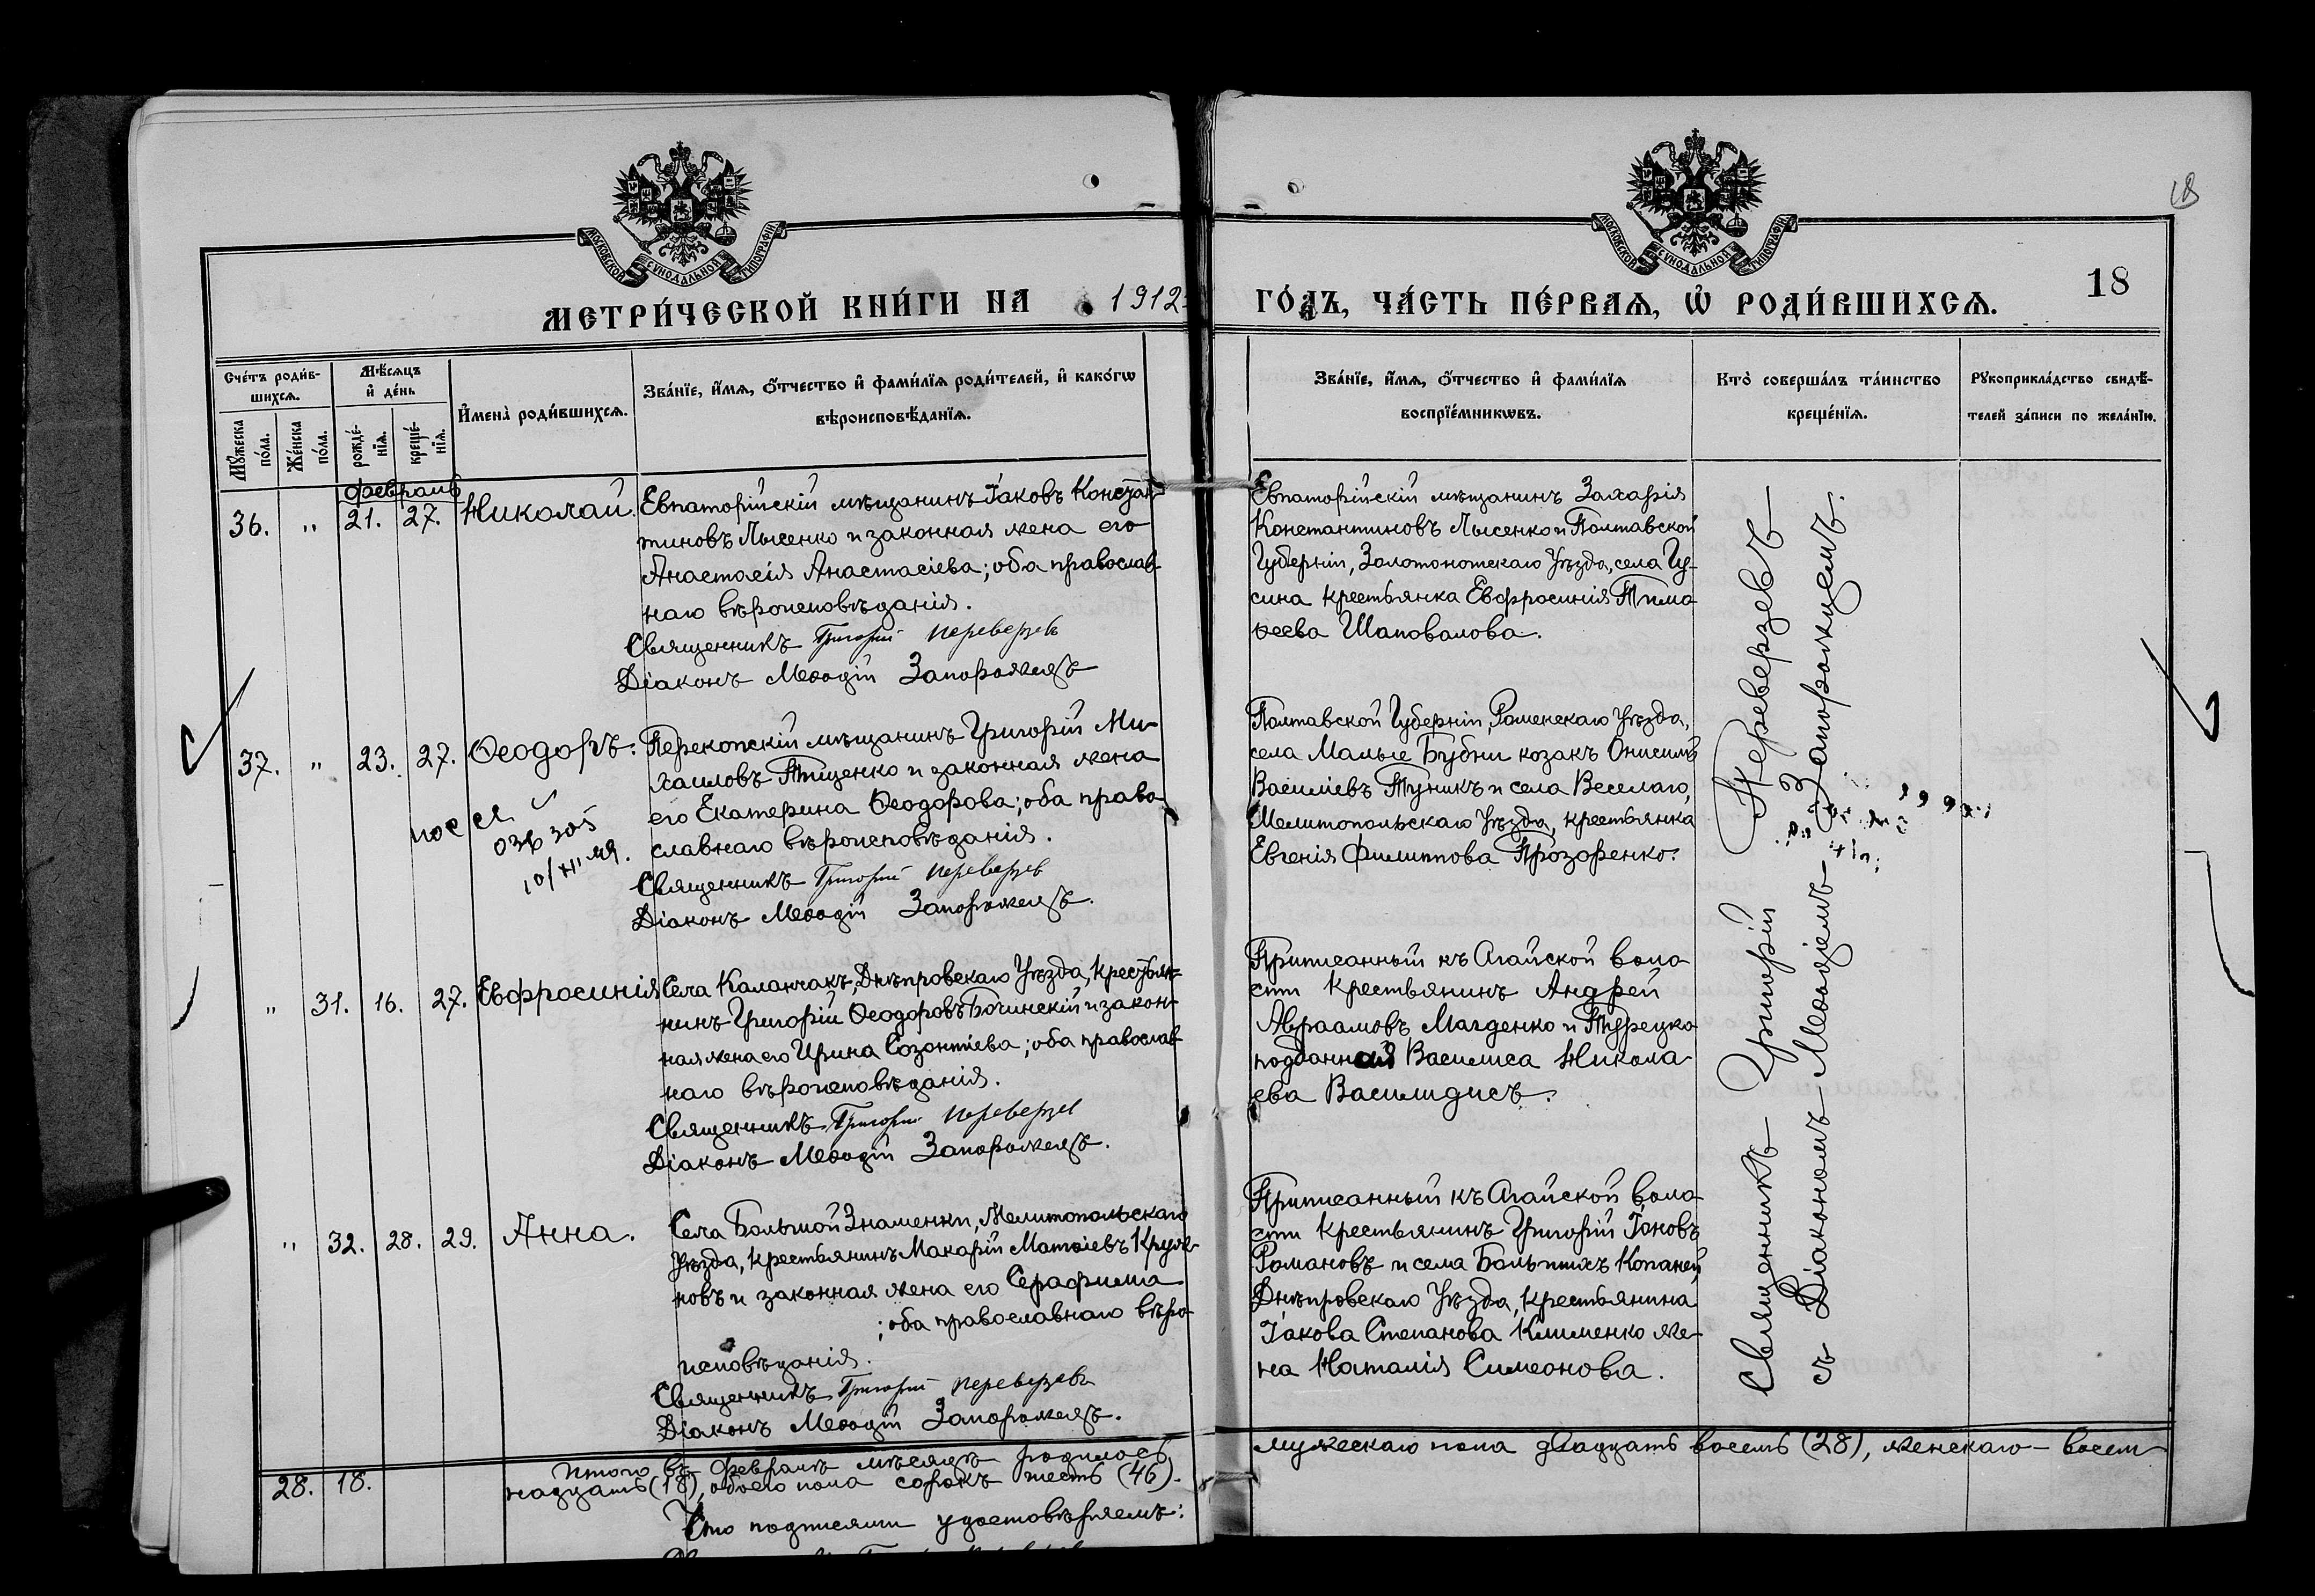 МОСКОВСКОЙ СѴНОДАЛЬНОЙ ТИПОГРАФІИ
МОСКОВСКОЙ СѴНОДАЛЬНОЙ ТИПОГРАФІИ
18
18
МЕТРИ́ЧЕСКОЙ КНИ́ГИ НА 1912
ГО́ДЪ, ЧА́СТЬ ПЕ́РВАѦ, Ѡ҆ РОДИ́ВШИХСѦ.
Сче́тъ роди́в-
шихсѧ.
Мꙋ́жеска по́ла.
Же́нска по́ла.
Мѣ́сѧцъ
и҆ де́нь
рожде́-
нїѧ.
креще́-
нїѧ.
И҆мена̀ роди́вшихсѧ.
Зва́нїе, и҆́мѧ, ѻ҆́тчество и҆ фами́лїѧ роди́телей, и҆ како́гѡ
вѣроисповѣ́данїѧ.
Зва́нїе, и҆́мѧ, ѻ҆́тчество и҆ фами́лїѧ
воспрїе́мникѡвъ.
Кто̀ соверша́лъ та́инство
креще́нїѧ.
Рꙋкоприкла́дство свидѣ́-
телей за́писи по жела́нїю.
Февраль
36. " 21. 27. Николай.
Евпаторійскій мѣщанинъ Іаковъ Констан-
тиновъ Лысенко и законная жена его
Анастасія Анастасіева; оба православ-
наго вѣроисповѣданія.
Священникъ Григорій Переверзевъ
Діаконъ Меѳодій Запорожецъ
Евпаторійскій мѣщанинъ Захарія
Константиновъ Лысенко и Полтавской
Губерніи, Золотоношскаго Уѣзда, села Гу-
сина крестьянка Евфросинія Тимо-
ѳеева Шаповалова.
37. " 23. 27. Ѳеодоръ.
Перекопскій мѣщанинъ Григорій Ми-
хаиловъ Тищенко и законная жена
его Екатерина Ѳеодорова; оба право-
славнаго вѣроисповѣданія.
Священникъ Григорій Переверзев
Діаконъ Меѳодій Запорожецъ.
036305
Полтавской Губерніи, Роменскаго Уѣзда,
села Малые Бубны козакъ Онисимъ
Василіевъ Туникъ и села Веселаго,
Мелитопольскаго Уѣзда, крестьянка
Евгенія Филиппова Прозоренко.
" 31. 16. 27. Евфросинія
Села Каланчакъ, Днѣпровскаго Уѣзда, крестья-
нинъ Григорій Ѳеодоровъ Бочинскій и закон-
ная жена его Ирина Созонтіева; оба православ-
наго вѣроисповѣданія.
Священникъ Григорій Переверзев
Діаконъ Меѳодій Запорожецъ.
Приписанный къ Агайской воло-
сти крестьянинъ Андрей
Авраамовъ Магденко и Турецко-
подданная Василиса Никола-
ева Василидисъ.
" 32. 28. 29. Анна.
Села Большой Знаменки, Мелитопольскаго
Уѣзда, крестьянинъ Макарій Матѳіевъ
новъ и законная жена его Серафима
; оба православнаго вѣро-
исповѣданія.
Священникъ Григорій Переверзевъ
Діаконъ Меѳодій Запорожецъ.
Приписанный къ Агайской воло-
сти крестьянинъ Григорій Іаковъ
Романовъ и села Большихъ Копаней,
Днѣпровскаго Уѣзда, крестьянина
Іакова Степанова Клименко же-
на Наталія Симеонова.
Священникъ Григорій Переверзевъ
съ Діакономъ Меѳодіемъ Запорожцемъ.
28. 18.
Итого въ Февралѣ мѣсяцѣ родилось
мужескаго пола двадцать восемь (28), женскаго – восем-
надцать (18), обоего пола сорокъ шесть (46).
Что подписями удостовѣряемъ: